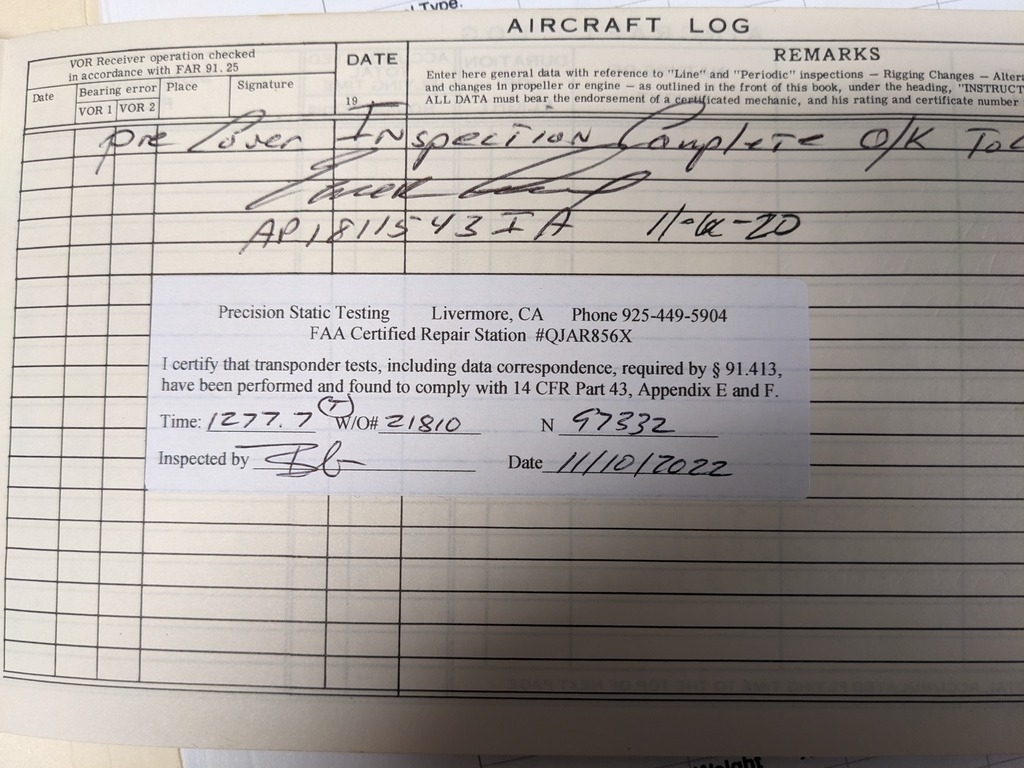 Type.
AIRCRAFT LOG
VOR Receiver operation checked
in accordance with FAR 91. 25
DATE
REMARKS
Date
Bearing error
Place
Signature
VOR 1
VOR 2
19
Enter here general data with reference to "Line" and "Periodic" inspections — Rigging Changes — Alter
and changes in propeller or engine — as outlined in the front of this book, under the heading, "INSTRUCT
ALL DATA must bear the endorsement of a certificated mechanic, and his rating and certificate number
Pre Cover Inspection Complete O/K To
AP1811543 IA 11- -20
Precision Static Testing Livermore, CA Phone 925-449-5904
FAA Certified Repair Station #QJAR856X
I certify that transponder tests, including data correspondence, required by § 91.413,
have been performed and found to comply with 14 CFR Part 43, Appendix E and F.
Time: 1277.7 (T) W/O# 21810 N 97332
Inspected by Date 11/10/2022
Weight